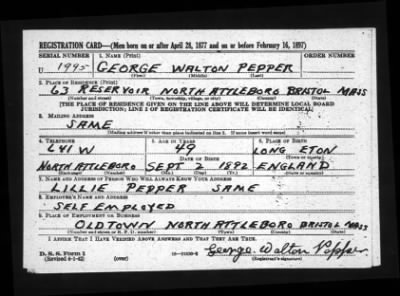 REGISTRATION CARD—(Men born on or after April 28, 1877 and on or before February 16, 1897)
SERIAL NUMBER 1. NAME (Print) ORDER NUMBER
U 1995 GEORGE WALTON PEPPER
(First) (Middle) (Last)
2. PLACE OF RESIDENCE (Print)
63 RESERVOIR NORTH ATTLEBORO BRISTOL MASS
(Number and street) (Town, township, village, or city) (County) (State)
[THE PLACE OF RESIDENCE GIVEN ON THE LINE ABOVE WILL DETERMINE LOCAL BOARD
JURISDICTION; LINE 2 OF REGISTRATION CERTIFICATE WILL BE IDENTICAL]
3. MAILING ADDRESS
SAME
[Mailing address if other than place indicated on line 2. If same insert word same]
4. TELEPHONE 5. AGE IN YEARS 6. PLACE OF BIRTH
641 W 49 LONG ETON
DATE OF BIRTH (Town or county)
NORTH ATTLEBORO SEPT 2 1892 ENGLAND
(Exchange) (Number) (Mo.) (Day) (Yr.) (State or country)
7. NAME AND ADDRESS OF PERSON WHO WILL ALWAYS KNOW YOUR ADDRESS
LILLIE PEPPER SAME
8. EMPLOYER'S NAME AND ADDRESS
SELF EMPLOYED
9. PLACE OF EMPLOYMENT OR BUSINESS
OLDTOWN NORTH ATTLEBORO BRISTOL MASS
(Number and street or R. F. D. number) (Town) (County) (State)
I AFFIRM THAT I HAVE VERIFIED ABOVE ANSWERS AND THAT THEY ARE TRUE.
D. S. S. Form 1
(Revised 4-1-42) (over) George Walton Pepper
(Registrant's signature)